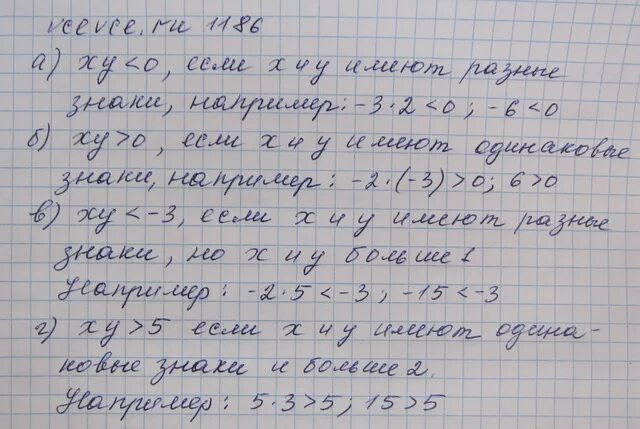 vcevce.ru 1186
а) xy<0, если x и y имеют разные
знаки, например: -3·2<0; -6<0
б) xy>0, если x и y имеют одинаковые
знаки, например: -2·(-3)>0; 6>0
в) xy<-3, если x и y имеют разные
знаки, но x и y больше 1
Например: -2·5<-3; -15<-3
г) xy>5 если x и y имеют одина-
ковые знаки и больше 2.
Например: 5·3>5; 15>5